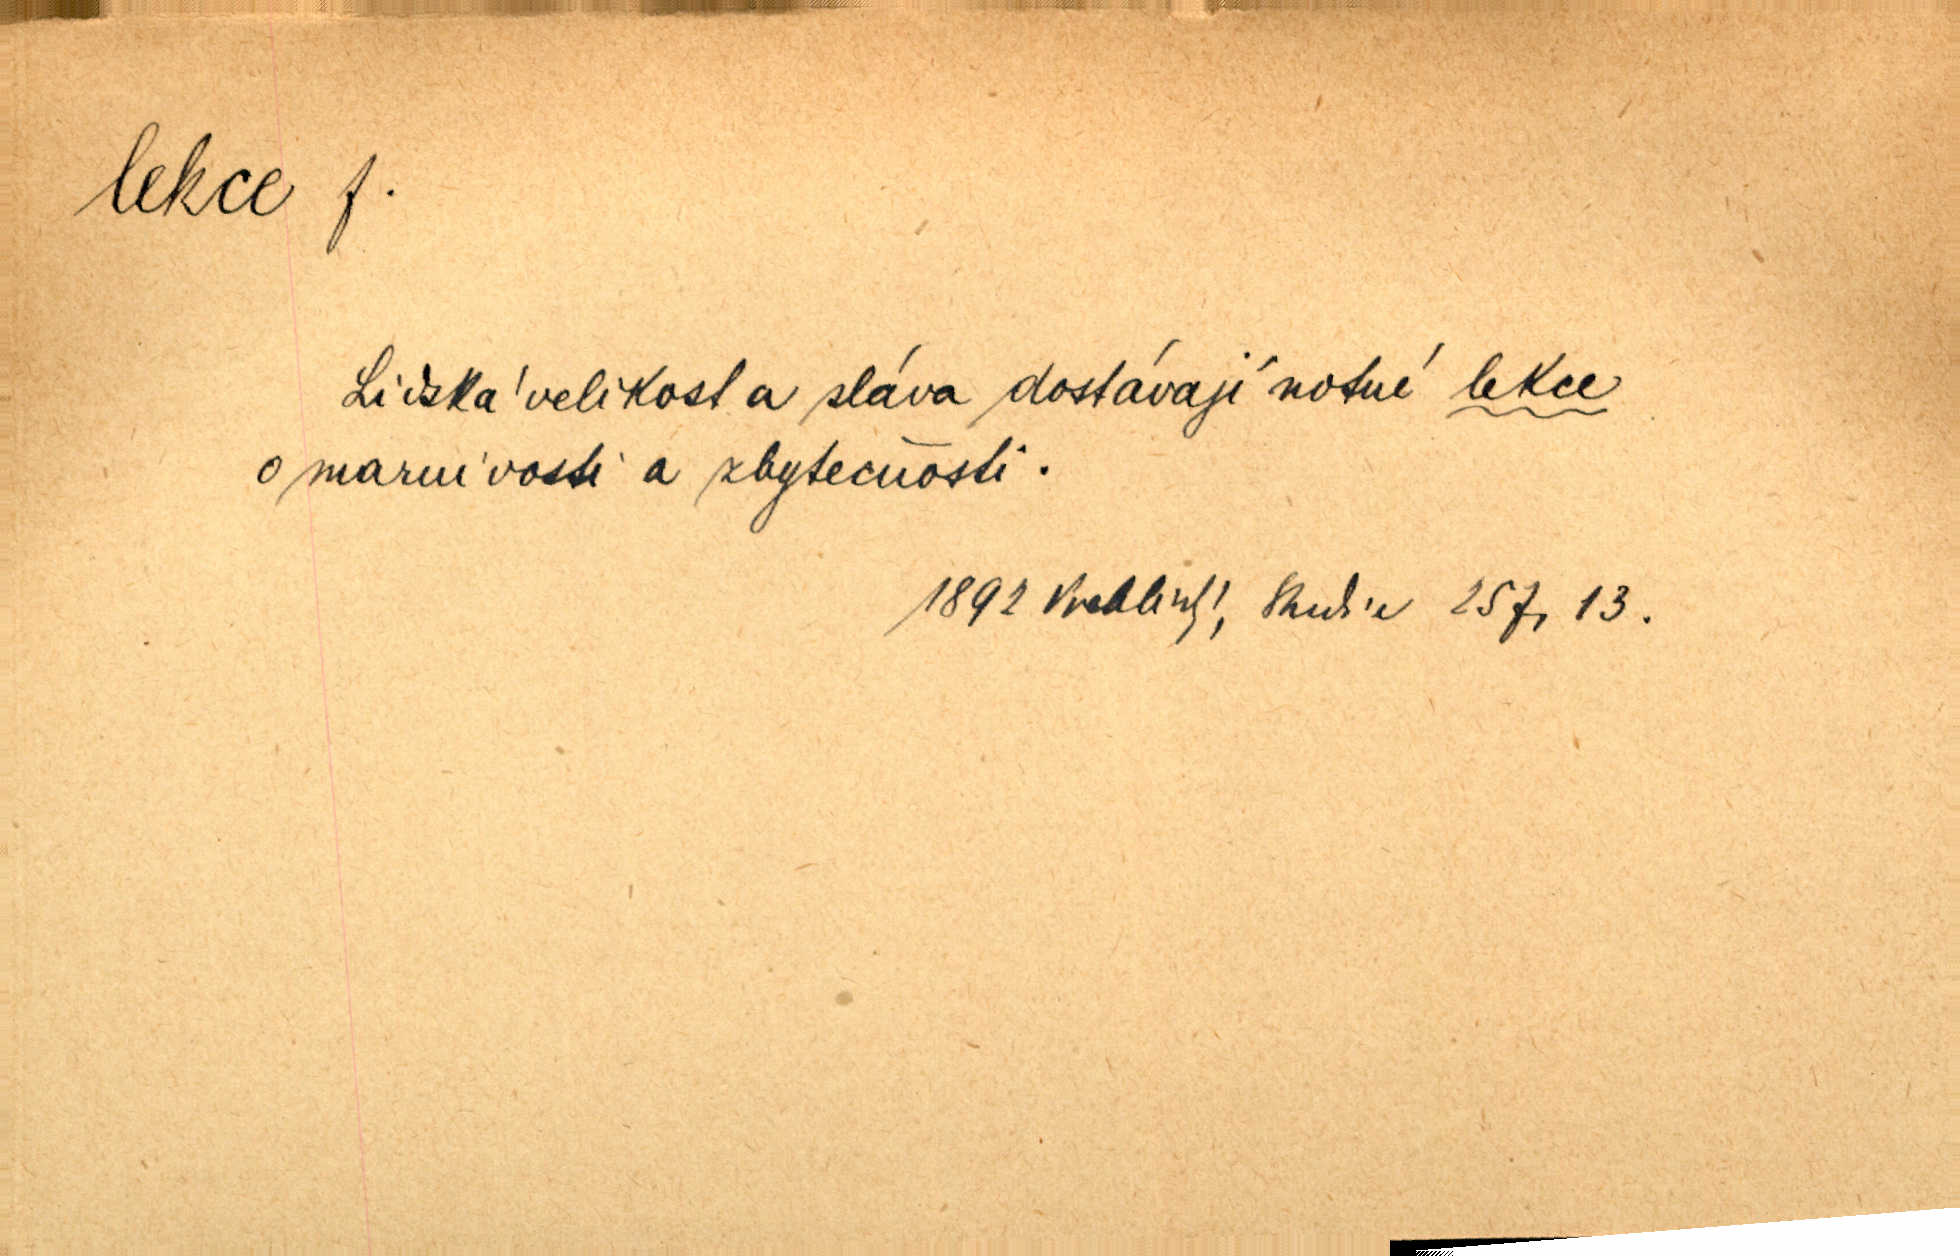 lekce f.
Lidská velikost a sláva dostávají notné lekce
o marnivosti a zbytečnosti.
1892 Vrchlický, Studie 257, 13.